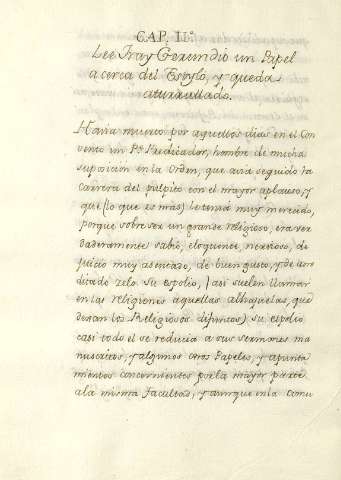 CAP. II.º
Lee Fray Gerundio un Papel
acerca del Estylo, y queda
aturrullado.
Havia muerto por aquellos dias en el Con
vento un Pe. Predicador, hombre de mucha
suposicion en la Orden, que avia seguido la
carrera del pulpito con el mayor aplauso, y
que (lo que es mas) le tenia muy merecido,
porque sobre ser un grande religioso, era ver
daderamente sabio, eloquente, nervioso, de
juicio muy asentado, de buen gusto, y de acre
ditado zelo. Su espolio, (asi suelen llamar
en las religiones aquellas alhajuelas, que
dexan los Religiosos difuntos) Su espolio
casi todo el se reducia a sus sermones ma
nuscritos, y algunos otros Papeles, y apunta
mientos concernientes por la mayor parte
a la misma Facultad, y aunque en la comu